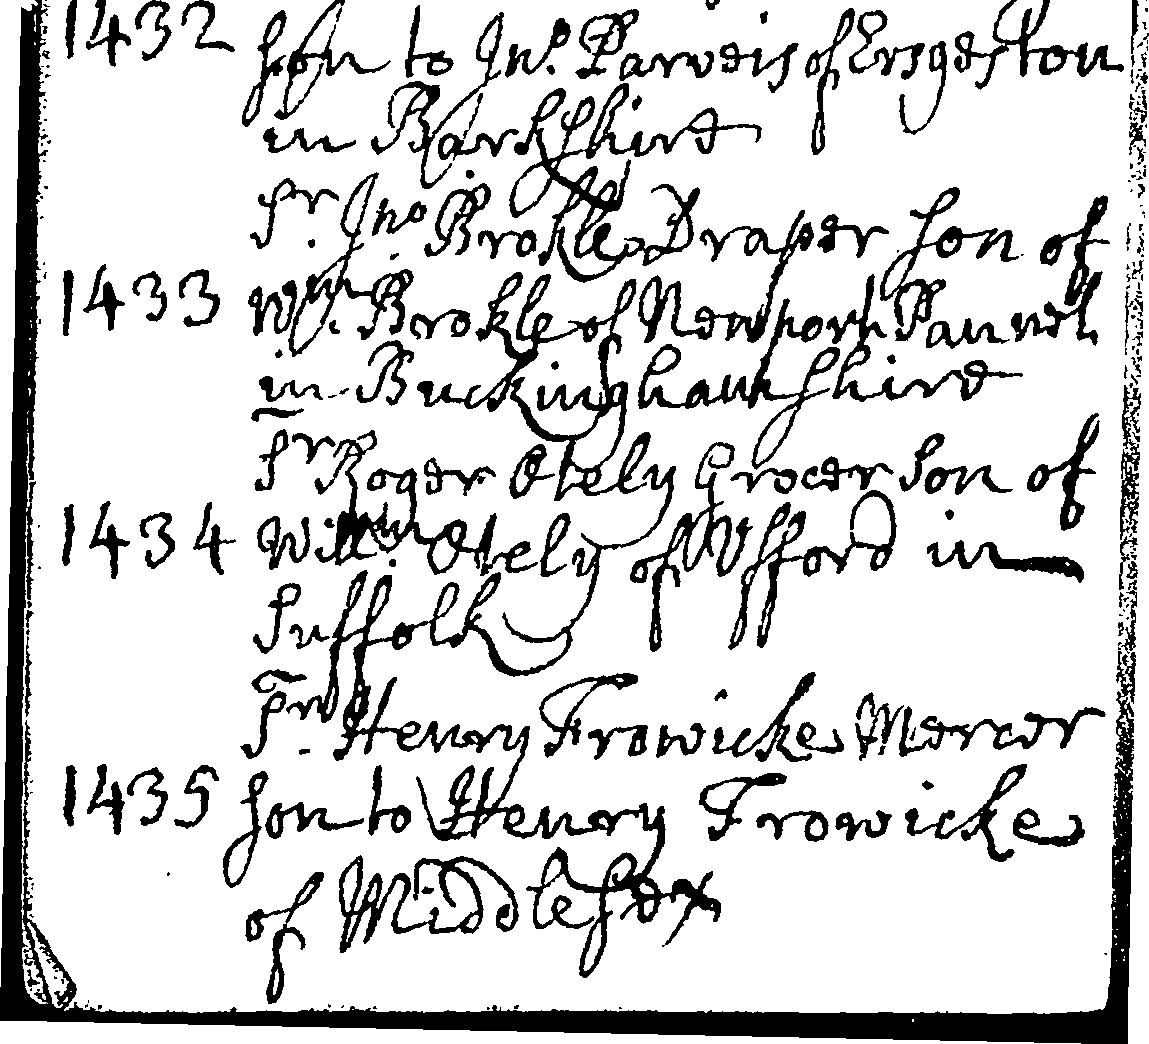 1432 son to Jno. Parveis of Ersgeston
in Barkshire
Sr. Jno Brokle Draper son of
1433 Wm. Brokle of Newport Pannel
in Buckinghamshire
Sr Roger Otely Grocer Son of
1434 Willm Otely of Ufford in
Suffolk
Sr. Henry Frowicke Mercer
1435 son to Henry Frowicke
of Middlesex